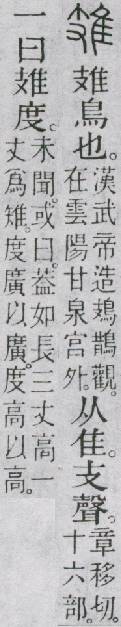 䧴 䧴鳥也。漢武帝造鳷鵲觀。在雲陽甘泉宫外。从隹。支聲。章移切。十六部。
一曰䧴度。未聞。或曰。葢如長三丈高一丈爲雉。度廣以廣。度高以高。